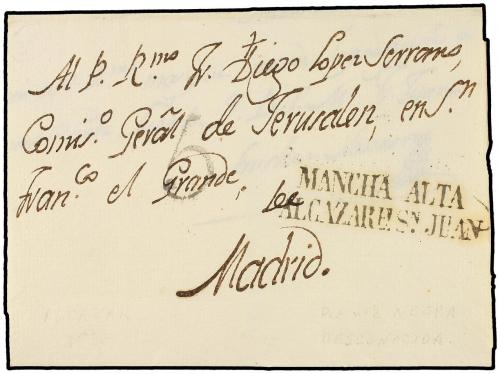 Al P. R.mo Fr. Diego Lopez Serrano,
Comis.o Gerãl de Jerusalen, en S.n
Fran.co el Grande, de
6
MANCHA ALTA
ALCAZAR DE S.N JUAN
Madrid.
ALCAZAR
NEGRA